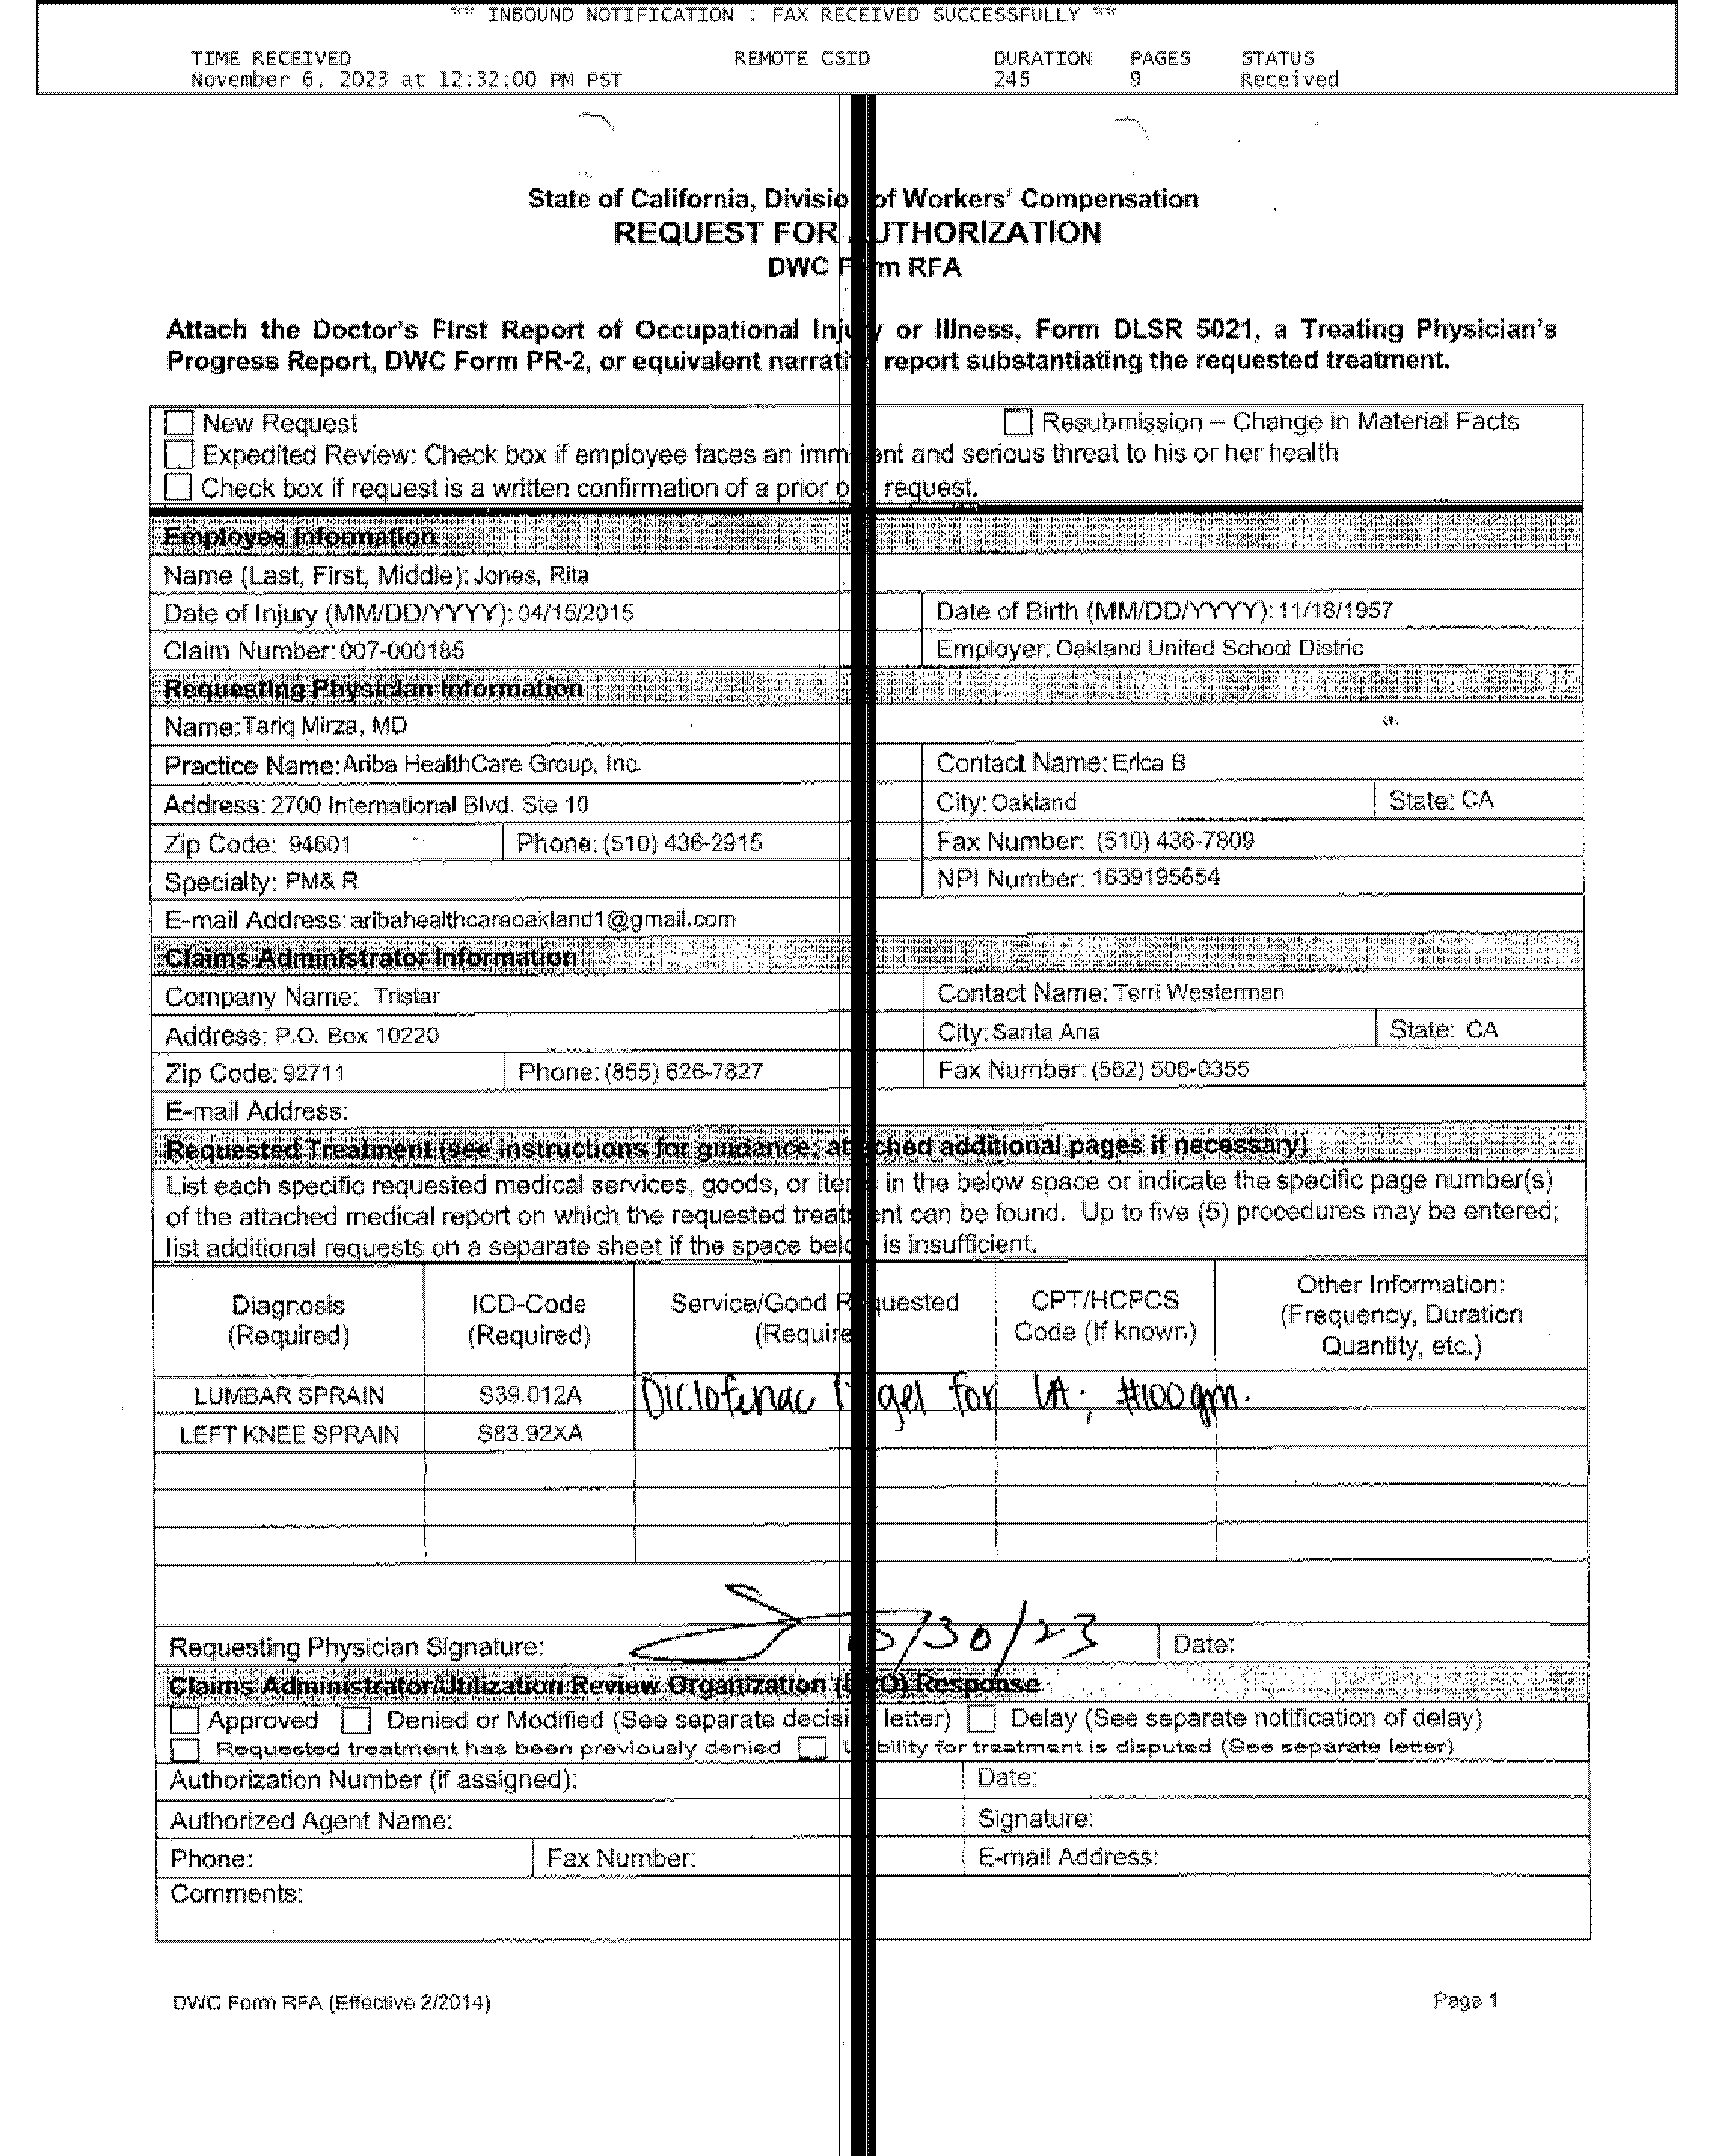 ** INBOUND NOTIFICATION : FAX RECEIVED SUCCESSFULLY **
TIME RECEIVED REMOTE CSID DURATION PAGES STATUS
November 6, 2023 at 12:32:00 PM PST 245 9 Received
State of California, Divisio of Workers' Compensation
REQUEST FOR UTHORIZATION
DWC F m RFA
Attach the Doctor's First Report of Occupational Inju y or Illness, Form DLSR 5021, a Treating Physician's
Progress Report, DWC Form PR-2, or equivalent narrati report substantiating the requested treatment.
New Request Resubmission – Change in Material Facts
Expedited Review: Check box if employee faces an imm ent and serious threat to his or her health
Check box if request is a written confirmation of a prior o request.
Employee Information
Name (Last, First, Middle): Jones, Rita
Date of Injury (MM/DD/YYYY): 04/15/2015 Date of Birth (MM/DD/YYYY): 11/18/1957
Claim Number: 007-000185 Employer: Oakland Unifed School Distric
Requesting Physician Information
Name: Tariq Mirza, MD
Practice Name: Ariba HealthCare Group, Inc. Contact Name: Erica B
Address: 2700 International Blvd. Ste 10 City: Oakland State: CA
Zip Code: 94601 Phone: (510) 436-2915 Fax Number: (510) 436-7809
Specialty: PM& R NPI Number: 1639195654
E-mail Address: aribahealthcareoakland1@gmail.com
Claims Administrator Information
Company Name: Tristar Contact Name: Terri Westerman
Address: P.O. Box 10220 City: Santa Ana State: CA
Zip Code: 92711 Phone: (855) 626-7827 Fax Number: (562) 506-0355
E-mail Address:
Requested Treatment (see instructions for guidance; att ched additional pages if necessary)
List each specific requested medical services, goods, or item in the below space or indicate the specific page number(s)
of the attached medical report on which the requested treat ent can be found. Up to five (5) procedures may be entered;
list additional requests on a separate sheet if the space belo is insufficient.
Diagnosis (Required) ICD-Code (Required) Service/Good R quested (Require CPT/HCPCS Code (If known) Other Information: (Frequency, Duration Quantity, etc.)
LUMBAR SPRAIN S39.012A Diclofenac gel for LA; #100 gm.
LEFT KNEE SPRAIN S83.92XA
Requesting Physician Signature: /30/23 Date:
Claims Administrator/Utilization Review Organization (U RO) Response
Approved Denied or Modified (See separate decisi letter) Delay (See separate notification of delay)
Requested treatment has been previously denied L bility for treatment is disputed (See separate letter)
Authorization Number (if assigned): Date:
Authorized Agent Name: Signature:
Phone: Fax Number: E-mail Address:
Comments:
DWC Form RFA (Effective 2/2014) Page 1